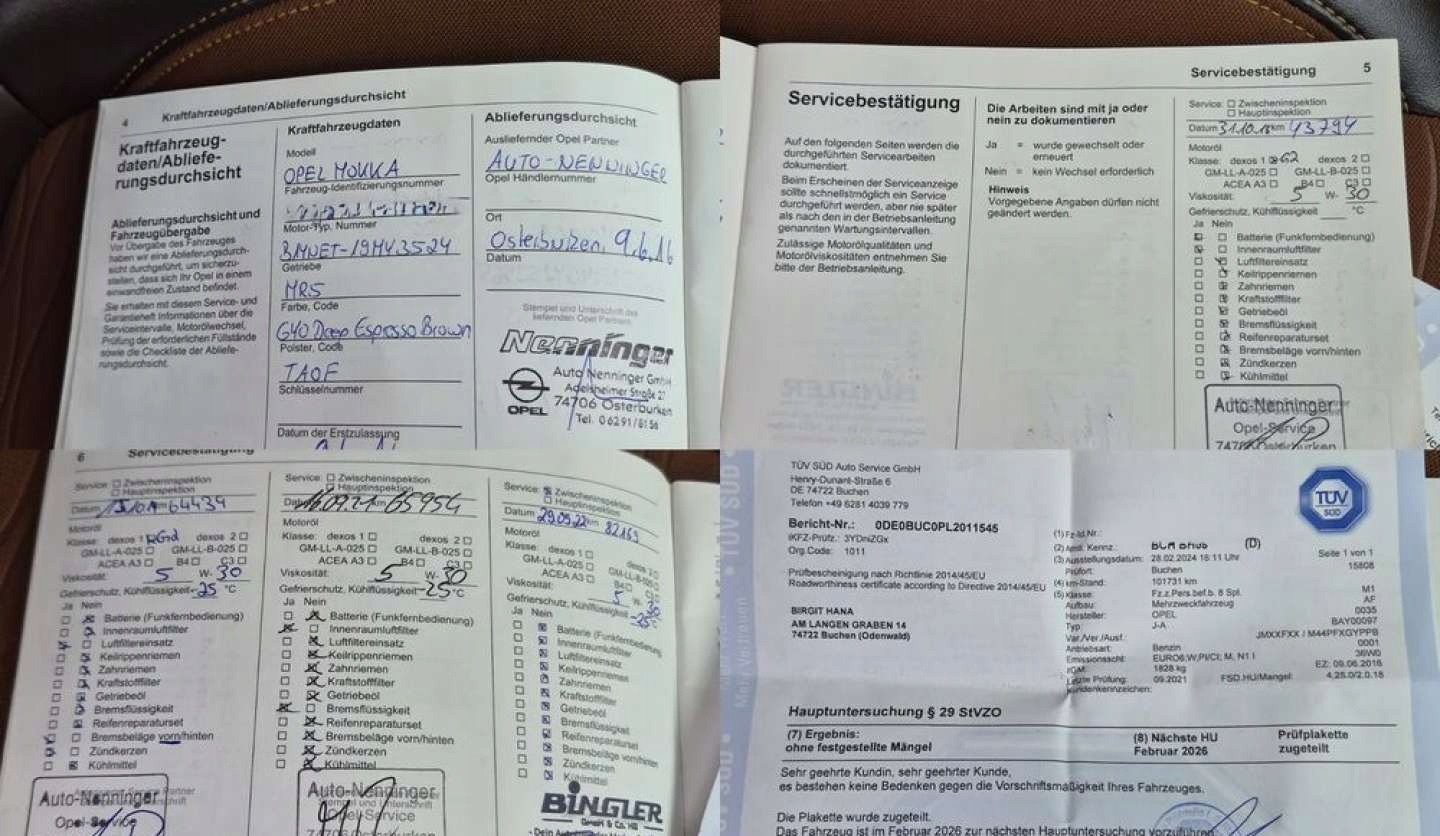 4 Kraftfahrzeugdaten/Ablieferungsdurchsicht
Kraftfahrzeug-
daten/Abliefe-
rungsdurchsicht
Ablieferungsdurchsicht und
Fahrzeugübergabe
Vor Übergabe des Fahrzeuges
haben wir eine Ablieferungsdurch-
sicht durchgeführt, um sicherzu-
stellen, dass sich Ihr Opel in einem
einwandfreien Zustand befindet.
Sie erhalten mit diesem Service- und
Garantieheft Informationen über die
Serviceintervalle, Motorölwechsel,
Prüfung der erforderlichen Füllstände
sowie die Checkliste der Abliefe-
rungsdurchsicht.
Kraftfahrzeugdaten
Modell
OPEL MOKKA
Fahrzeug-Identifizierungsnummer
Motor-Typ, Nummer
Getriebe
MR5
Farbe, Code
G40 Deep Espresso Brown
Polster, Code
Schlüsselnummer
Datum der Erstzulassung
Ablieferungsdurchsicht
Ausliefernder Opel Partner
AUTO-NENNINGER
Opel Händlernummer
Ort
Osterburken, 9.6.16
Datum
Stempel und Unterschrift des
liefernden Opel Partners
Nenninger
OPEL
Auto Nenninger GmbH
Adelsheimer Straße 27
74706 Osterburken
Tel. 06291/8156
Servicebestätigung 5
Servicebestätigung
Auf den folgenden Seiten werden die
durchgeführten Servicearbeiten
dokumentiert.
Beim Erscheinen der Serviceanzeige
sollte schnellstmöglich ein Service
durchgeführt werden, aber nie später
als nach den in der Betriebsanleitung
genannten Wartungsintervallen.
Zulässige Motorölqualitäten und
Motorölviskositäten entnehmen Sie
bitte der Betriebsanleitung.
Die Arbeiten sind mit ja oder
nein zu dokumentieren
Ja = wurde gewechselt oder
erneuert
Nein = kein Wechsel erforderlich
Hinweis
Vorgegebene Angaben dürfen nicht
geändert werden.
Service: Zwischeninspektion
Hauptinspektion
Datum 31.10.18 km 43794
Motoröl
Klasse: dexos 1 G2 dexos 2
GM-LL-A-025 GM-LL-B-025
ACEA A3 B4 C3
Viskosität: 5 W- 30
Gefrierschutz, Kühlflüssigkeit °C
Ja Nein
Batterie (Funkfernbedienung)
Innenraumluftfilter
Luftfiltereinsatz
Keilrippenriemen
Zahnriemen
Kraftstofffilter
Getriebeöl
Bremsflüssigkeit
Reifenreparaturset
Bremsbeläge vorn/hinten
Zündkerzen
Kühlmittel
Auto-Nenninger
Opel-Service
6 Servicebestätigung
Service: Zwischeninspektion
Hauptinspektion
Datum km 64434
Motoröl
Klasse: dexos 1 dexos 2
GM-LL-A-025 GM-LL-B-025
ACEA A3 B4 C3
Viskosität: 5 W- 30
Gefrierschutz, Kühlflüssigkeit -25 °C
Ja Nein
Batterie (Funkfernbedienung)
Innenraumluftfilter
Luftfiltereinsatz
Keilrippenriemen
Zahnriemen
Kraftstofffilter
Getriebeöl
Bremsflüssigkeit
Reifenreparaturset
Bremsbeläge vorn/hinten
Zündkerzen
Kühlmittel
Auto-Nenninger
Opel-Service
Service: Zwischeninspektion
Hauptinspektion
Datum 16.09.21 km 65954
Motoröl
Klasse: dexos 1 dexos 2
GM-LL-A-025 GM-LL-B-025
ACEA A3 B4 C3
Viskosität: 5 W- 30
Gefrierschutz, Kühlflüssigkeit -25 °C
Ja Nein
Batterie (Funkfernbedienung)
Innenraumluftfilter
Luftfiltereinsatz
Keilrippenriemen
Zahnriemen
Kraftstofffilter
Getriebeöl
Bremsflüssigkeit
Reifenreparaturset
Bremsbeläge vorn/hinten
Zündkerzen
Kühlmittel
Auto-Nenninger
Opel-Service
Service: Zwischeninspektion
Hauptinspektion
Datum 29.09.22 km 82169
Motoröl
Klasse: dexos 1 dexos 2
GM-LL-A-025 GM-LL-B-025
ACEA A3 B4 C3
Viskosität: 5 W- 30
Gefrierschutz, Kühlflüssigkeit -25 °C
Ja Nein
Batterie (Funkfernbedienung)
Innenraumluftfilter
Luftfiltereinsatz
Keilrippenriemen
Zahnriemen
Kraftstofffilter
Getriebeöl
Bremsflüssigkeit
Reifenreparaturset
Bremsbeläge vorn/hinten
Zündkerzen
Kühlmittel
BINGLER
GmbH & Co. KG
TÜV SÜD Auto Service GmbH
Henry-Dunant-Straße 6
DE 74722 Buchen
Telefon +49 6281 4039 779
Bericht-Nr.: 0DE0BUC0PL2011545
iKFZ-Prüfz.: 3YDniZGx
Org.Code: 1011
Prüfbescheinigung nach Richtlinie 2014/45/EU
Roadworthiness certificate according to Directive 2014/45/EU
BIRGIT HANA
AM LANGEN GRABEN 14
74722 Buchen (Odenwald)
TÜV
SÜD
(1) Fz-Id.Nr.:
(2) Amtl. Kennz.: (D)
(3) Ausstellungsdatum: 28.02.2024 16:11 Uhr Seite 1 von 1
Prüfort: Buchen 15808
(4) km-Stand: 101731 km
(5) Klasse: Fz.z.Pers.bef.b. 8 Spl. M1
Aufbau: Mehrzweckfahrzeug AF
Hersteller: OPEL 0035
Typ: J-A BAY00097
Var./Ver./Ausf.: JMXXFXX / M44PFXGYPPB
Antriebsart: Benzin 0001
Emissionsschl: EURO6;W;PI/CI; M, N1 I 36W0
zGM: 1828 kg EZ: 09.06.2016
Letzte Prüfung: 09.2021 FSD.HU/Mangel: 4.25.0/2.0.18
Kundenkennzeichen:
Hauptuntersuchung § 29 StVZO
(7) Ergebnis:
ohne festgestellte Mängel
(8) Nächste HU
Februar 2026
Prüfplakette
zugeteilt
Sehr geehrte Kundin, sehr geehrter Kunde,
es bestehen keine Bedenken gegen die Vorschriftsmäßigkeit Ihres Fahrzeuges.
Die Plakette wurde zugeteilt.
Das Fahrzeug ist im Februar 2026 zur nächsten Hauptuntersuchung vorzuführen